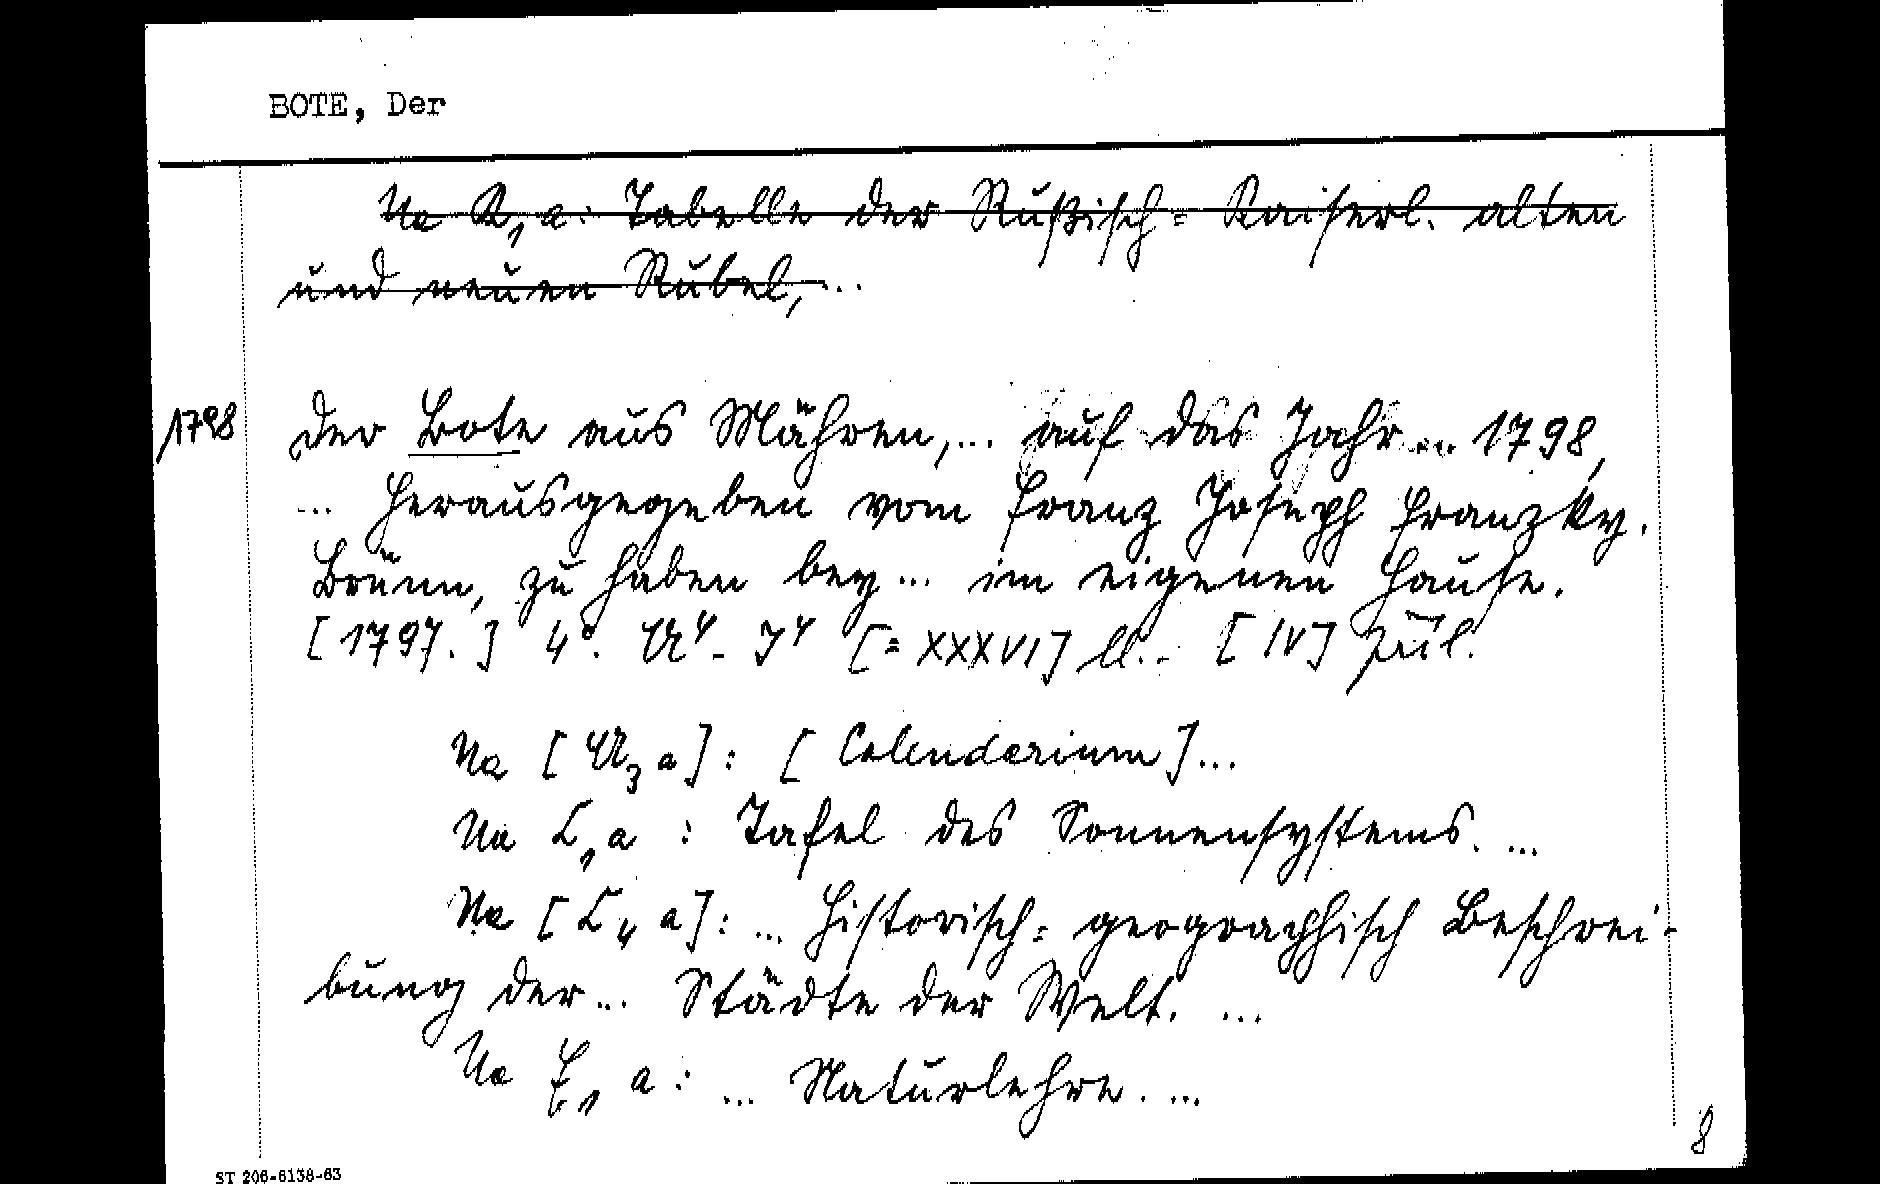 BOTE, Der
Na K₁a: Tabelle der Rußisch= Kaiserl. alten
und neuen Rubel, ...
1798 Der Bote aus Mähren, ... auf das Jahr ... 1798,
... herausgegeben vom Franz Joseph Franzky.
Brünn, zu haben bey ... im eigenen Hause.
[1797.] 4°. A⁴ - J⁴ [= XXXVI] ll. - [IV] příl.
Na [A₃a]: [Calendarium] ...
Na C₁a : Tafel des Sonnensystems. ...
Na [C₄a]: ... Historisch= geographisch Beschrei-
bung der ... Städte der Welt. ...
Na F₁a: ... Naturlehre. ...
8
ST 206-6138-63